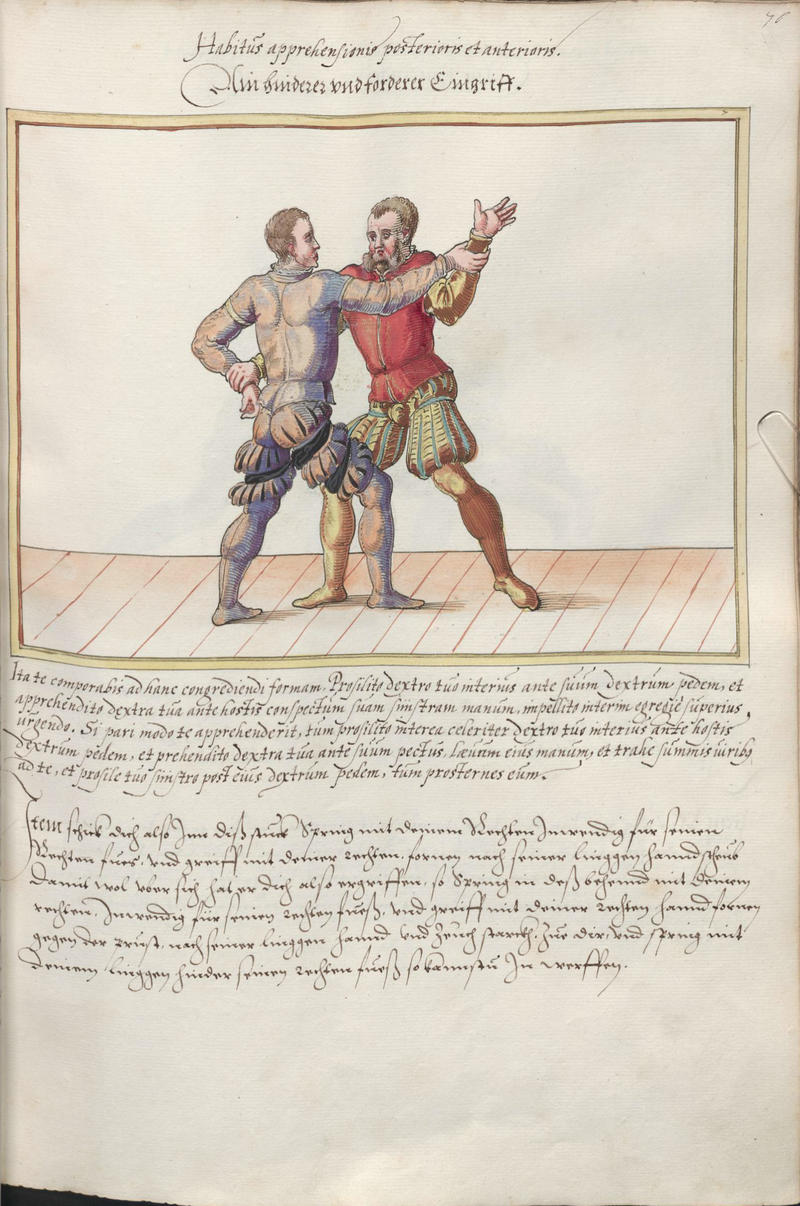 76
Habitus apprehensionis posterioris et anterioris.
Ain hinderer vnd forderer Eingriff.
Ita te comporabis ad hanc congrediendi formam, Prosilito dextro tuo interius ante suum dextrum pedem, et
apprehendito dextra tua ante hostis conspectum suam sinistram manum, impellito interim egregie superius
urgendo. Si pari modo te apprehenderit, tum prosilito interea celeriter dextro tuo interius ante hostis
dextrum pedem, et prehendito dextra tua ante suum pectus, laevam eius manum, et trahe summis uirib9
ad te, et prosile tuo sinistro post eius dextrum pedem, tum prosternes eum.
Item schick dich also Jnn diß stuck Spring mit deinem Rechten Jnwendig für seinen
Rechten fues, vnd greiff mit deiner rechten, fornen nach seiner linggen hannd scheub
damit wol vber sich hat er dich also ergriffen, so Spring in deß behennd mit deinem
rechten, Jnwendig für seinen rechten fueß, vnd greiff mit deiner rechten hannd fornen
gegen der prust, nach seiner linggen hannd vnd Zeuch starckh, Zue dir, vnd spring mit
deinem linggen hinder seinen rechten fueß so kannstu Jn werffen.